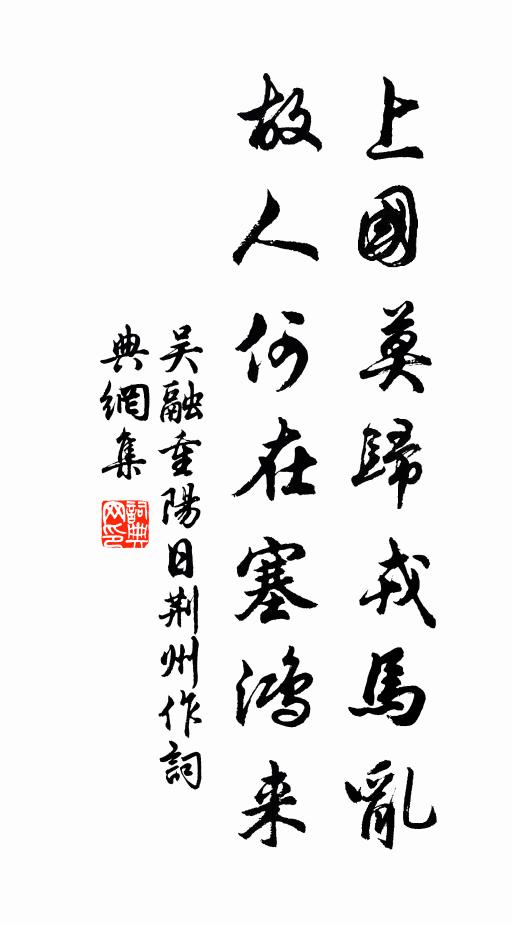 上國莫歸戎馬亂
故人何在塞鴻来
吳融重陽日荆州作詞
典網集
詞典
网印